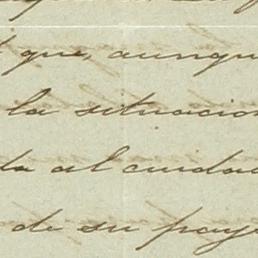 que, aunqu
la situacion
da al cuidad
de su pays